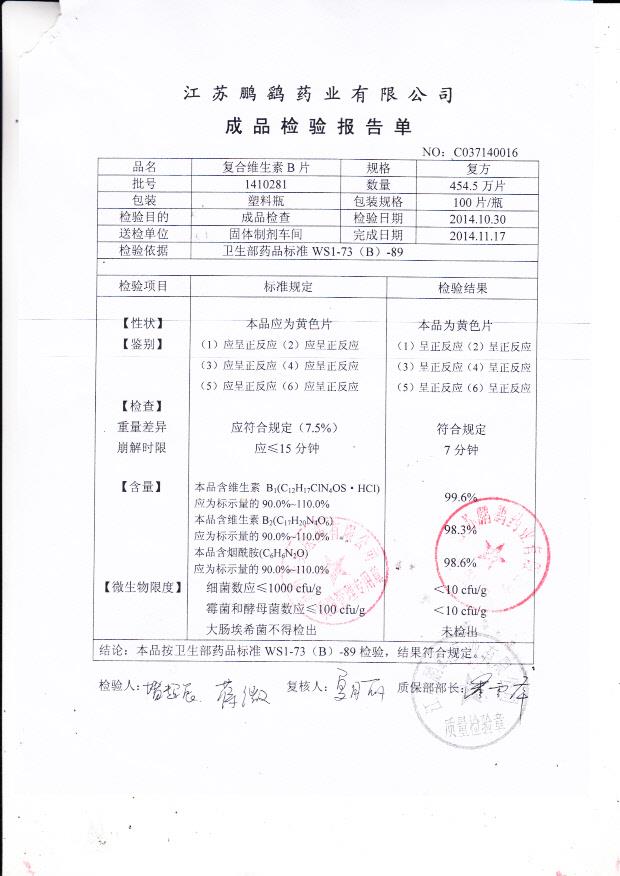 江苏鹏鹞药业有限公司
成品检验报告单
NO: C037140016
品名 复合维生素 B 片 规格 复方
批号 1410281 数量 454.5 万片
包装 塑料瓶 包装规格 100 片/瓶
检验目的 成品检查 检验日期 2014.10.30
送检单位 固体制剂车间 完成日期 2014.11.17
检验依据 卫生部药品标准 WS1-73（B）-89
检验项目 标准规定 检验结果
【性状】 本品应为黄色片 本品为黄色片
【鉴别】 （1）应呈正反应（2）应呈正反应 （1）呈正反应（2）呈正反应
（3）应呈正反应（4）应呈正反应 （3）呈正反应（4）呈正反应
（5）应呈正反应（6）应呈正反应 （5）呈正反应（6）呈正反应
【检查】
重量差异 应符合规定（7.5%） 符合规定
崩解时限 应≤15 分钟 7 分钟
【含量】 本品含维生素 B₁(C₁₂H₁₇ClN₄OS·HCl)
应为标示量的 90.0%~110.0% 99.6%
本品含维生素 B₂(C₁₇H₂₀N₄O₆)
应为标示量的 90.0%~110.0% 98.3%
本品含烟酰胺(C₆H₆N₂O)
应为标示量的 90.0%~110.0% 98.6%
【微生物限度】 细菌数应≤1000 cfu/g <10 cfu/g
霉菌和酵母菌数应≤100 cfu/g <10 cfu/g
大肠埃希菌不得检出 未检出
结论：本品按卫生部药品标准 WS1-73（B）-89 检验，结果符合规定。
检验人： 复核人： 质保部部长：
质量检验章